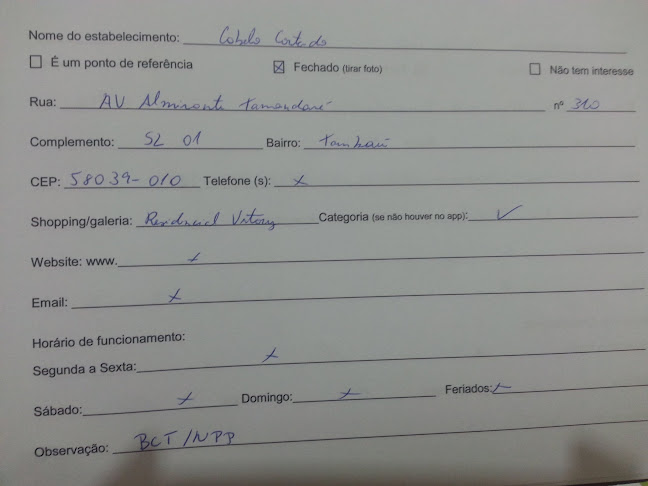 Nome do estabelecimento: Cabelo Cortado
É um ponto de referência Fechado (tirar foto) Não tem interesse
Rua: AV Almirante Tamandaré nº 310
Complemento: SL 01 Bairro: Tambaú
CEP: 58039-010 Telefone (s): x
Shopping/galeria: Residencial Vitory Categoria (se não houver no app): ✓
Website: www. x
Email: x
Horário de funcionamento:
Segunda a Sexta: x
Sábado: x Domingo: x Feriados: x
Observação: BCT/NPP